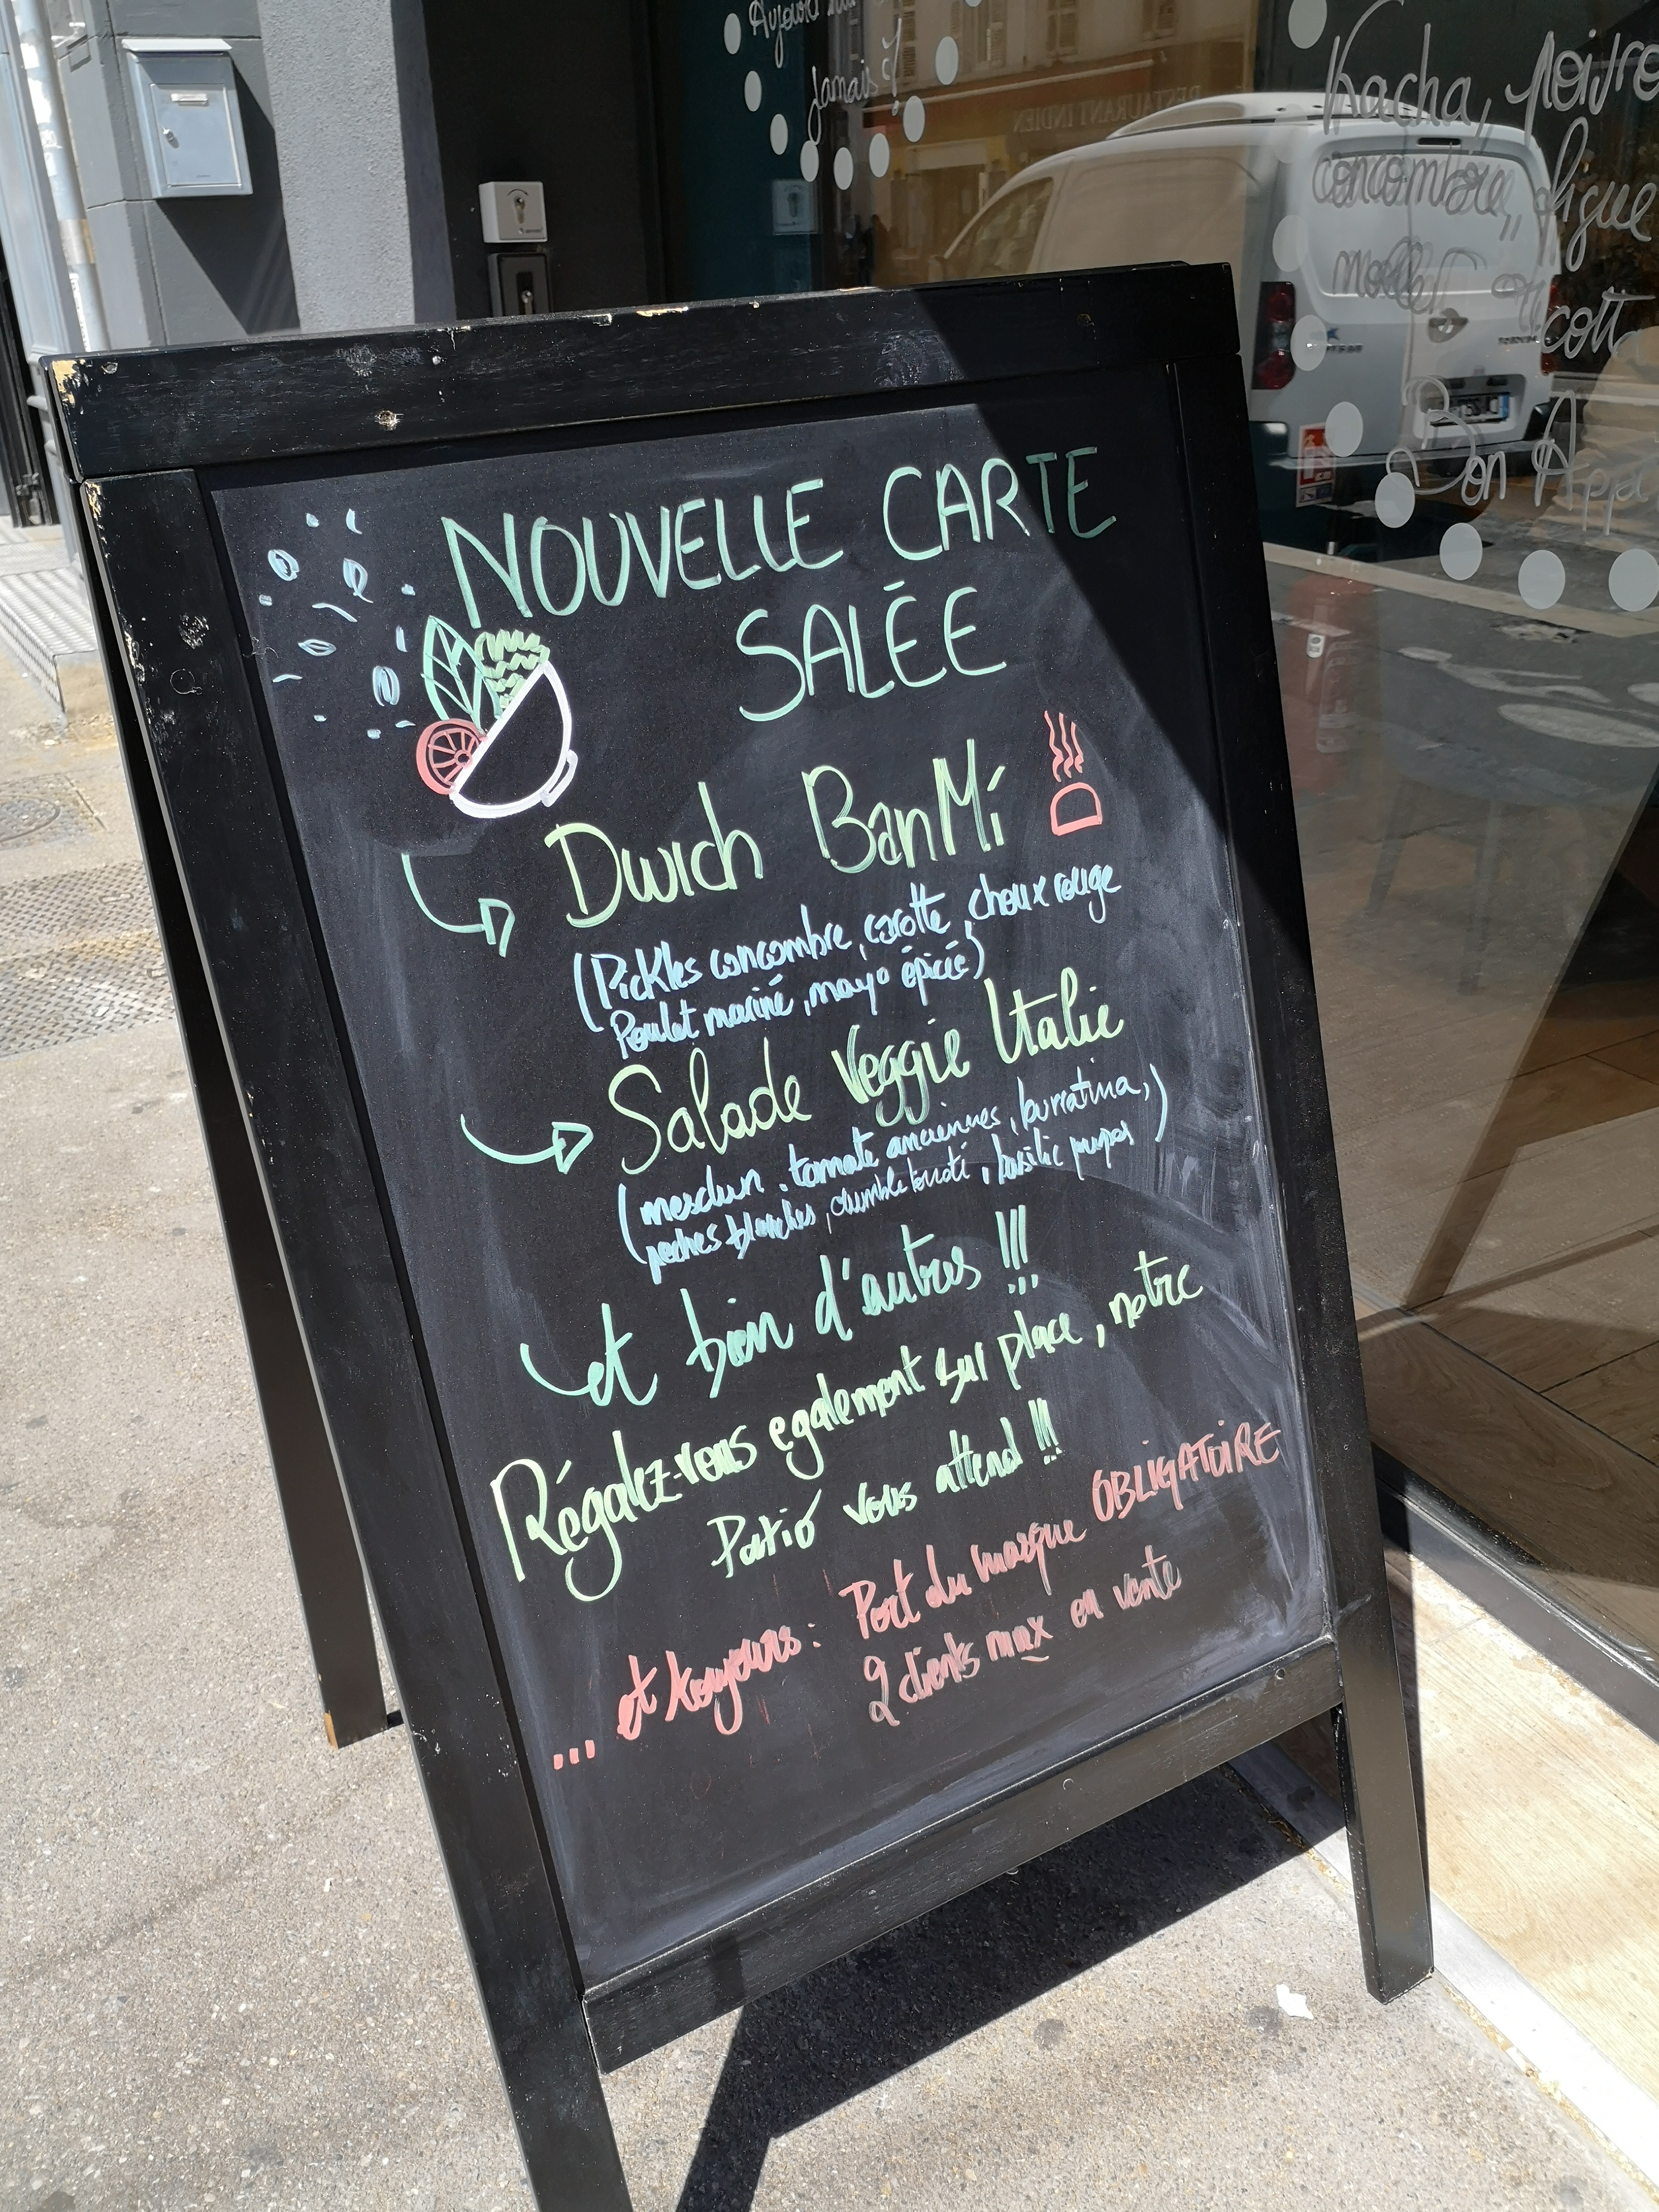 Aujourd'hui
Jamais ?
RESTAURANT INDIEN
Kacha, poivre
concombre, figue
Bon App
NOUVELLE CARTE
SALÉE
Dwich BanMi
(Pickles concombre, carotte, choux rouge
Poulet mariné, mayo épicée)
Salade Veggie Italie
(mesclun. tomate anciennes, burratina,
peches blanches, crumble, basilic)
et bien d'autres !!!
Régalez-vous egalement sur place, notre
Patio vous attend !!!
... et toujours : Port du masque OBLIGATOIRE
2 clients max en vente